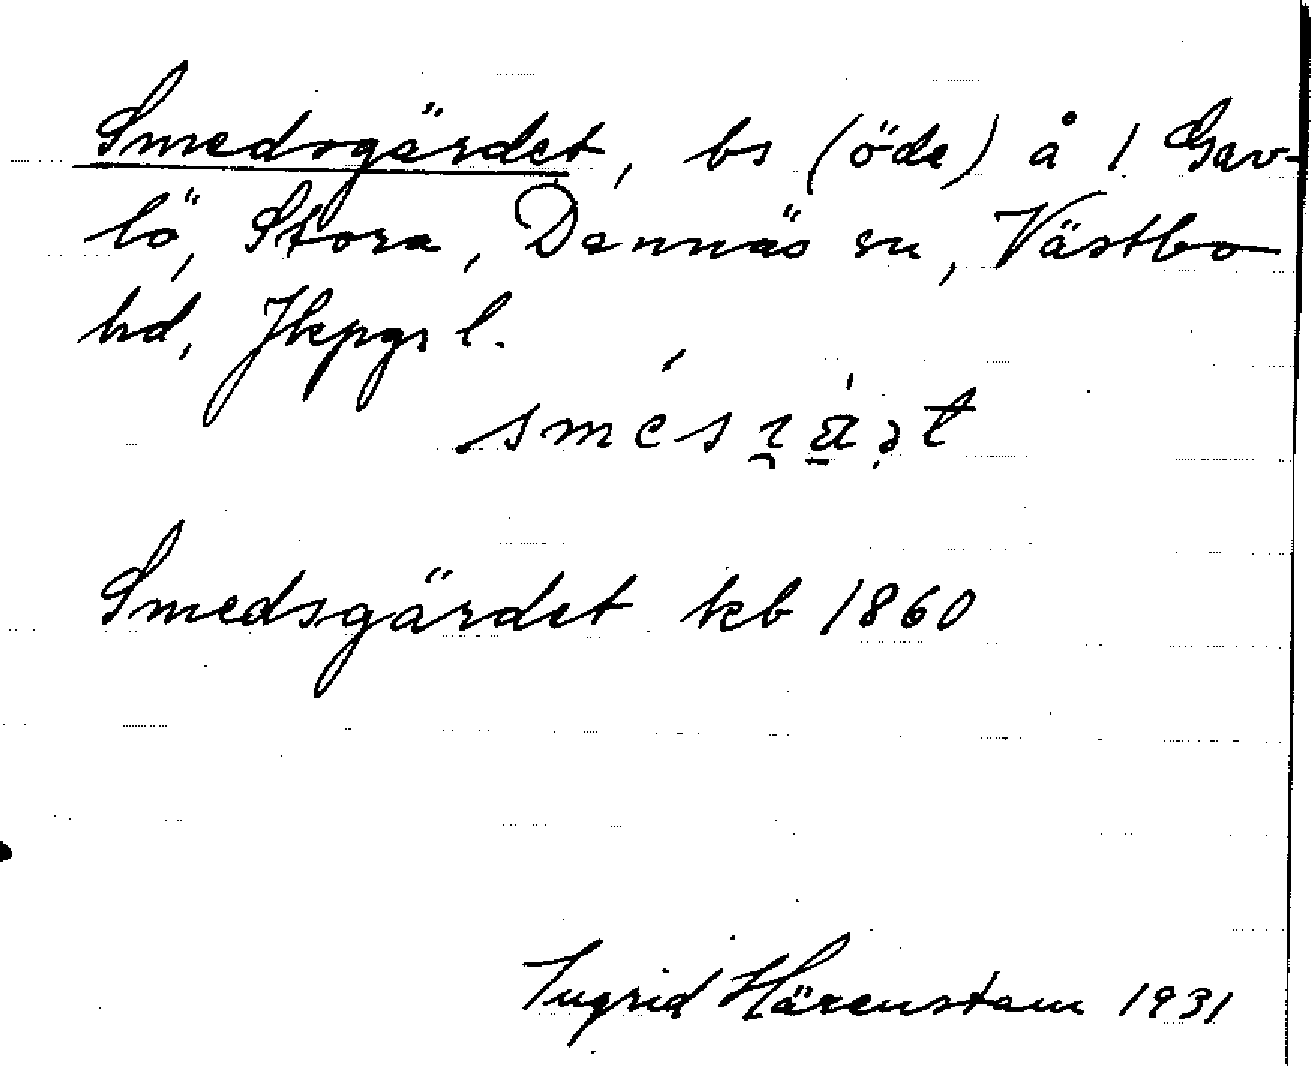 Smedsgärdet, bs (öde) å 1 Gav-
lö, Stora, Dannäs sn, Västbo
hd, Jkpgs l.
Smedsgärdet kb 1860
Ingrid Härenstam 1931